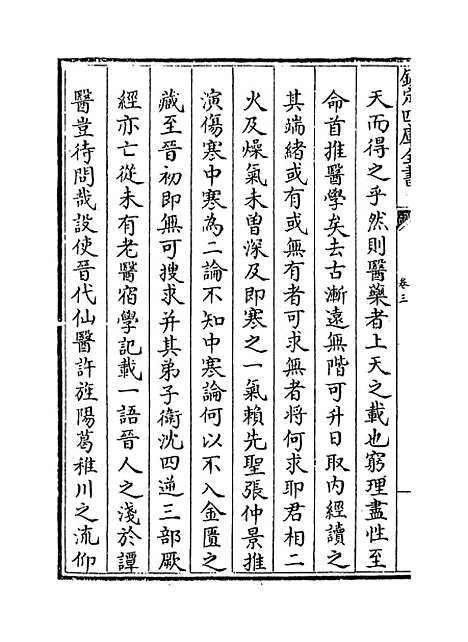 欽定四庫全書
卷三
天而得之乎然則醫藥者上天之載也窮理盡性至
命首推醫學矣去古漸遠無階可升日取內經讀之
其端緒或有或無有者可求無者將何求耶君相二
火及燥氣未曾深及即寒之一氣賴先聖張仲景推
演傷寒中寒為二論不知中寒論何以不入金匱之
藏至晉初即無可搜求并其弟子衛沈四逆三部厥
經亦亡從未有老醫宿學記載一語晉人之淺於譚
醫豈待問哉設使晉代仙醫許旌陽葛稚川之流仰